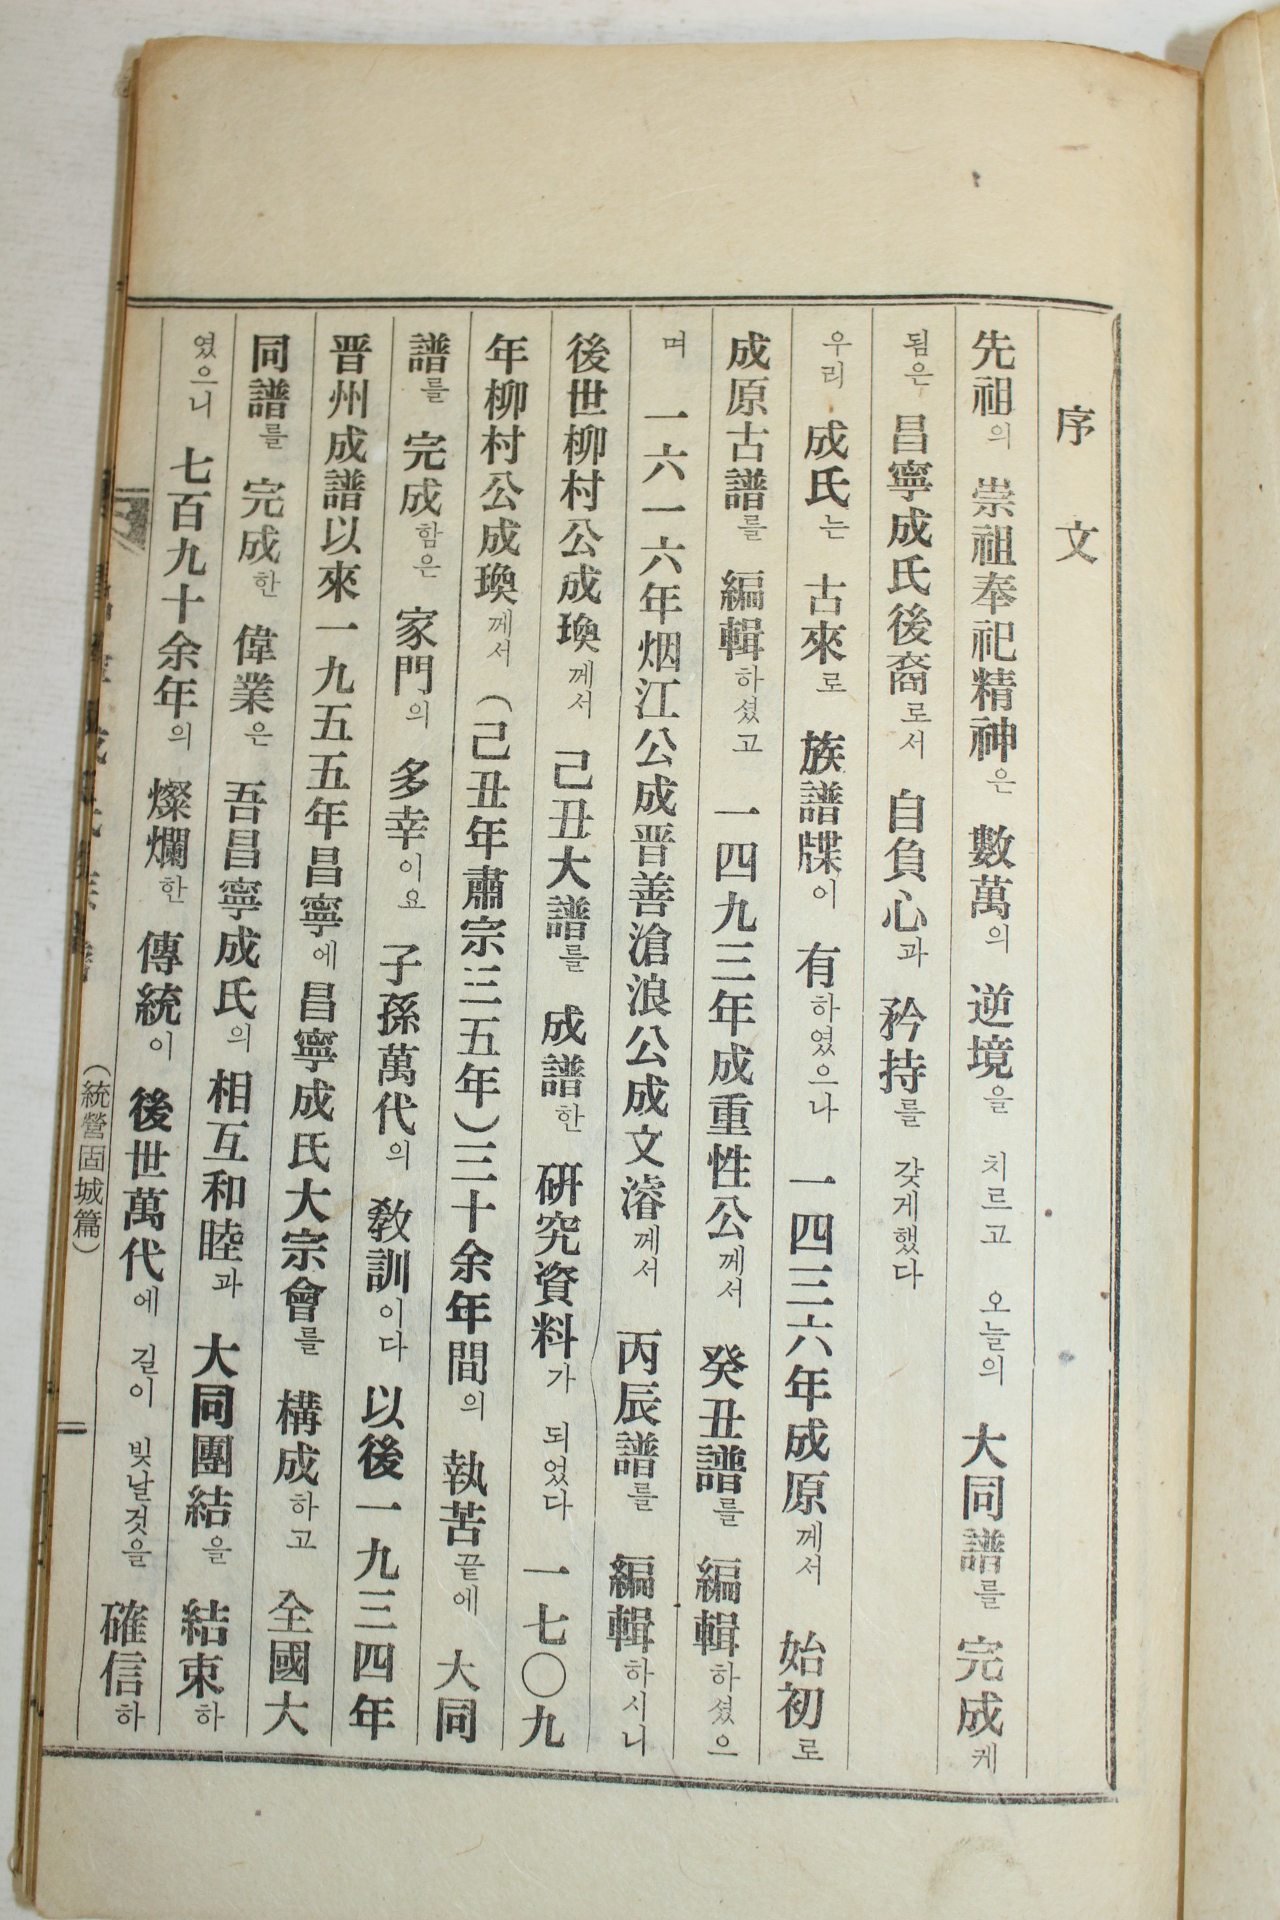 序文
先祖의 崇祖奉祀精神은 數萬의 逆境을 치르고 오늘의 大同譜를 完成케
됨은 昌寧成氏後裔로서 自負心과 矜持를 갖게했다
우리 成氏는 古來로 族譜牒이 有하였으나 一四三六年成原께서 始初로
成原古譜를 編輯하셨고 一四九三年成重性公께서 癸丑譜를 編輯하셨으
며 一六一六年烟江公成晋善滄浪公成文濬께서 丙辰譜를 編輯하시니
後世柳村公成瑍께서 己丑大譜를 成譜한 硏究資料가 되었다 一七〇九
年柳村公成瑍께서 (己丑年肅宗三五年)三十余年間의 執苦끝에 大同
譜를 完成함은 家門의 多幸이요 子孫萬代의 敎訓이다 以後一九三四年
晋州成譜以來一九五五年昌寧에昌寧成氏大宗會를 構成하고 全國大
同譜를 完成한 偉業은 吾昌寧成氏의 相互和睦과 大同團結을 結束하
였으니 七百九十余年의 燦爛한 傳統이 後世萬代에 길이 빛날것을 確信하
(統營固城篇)